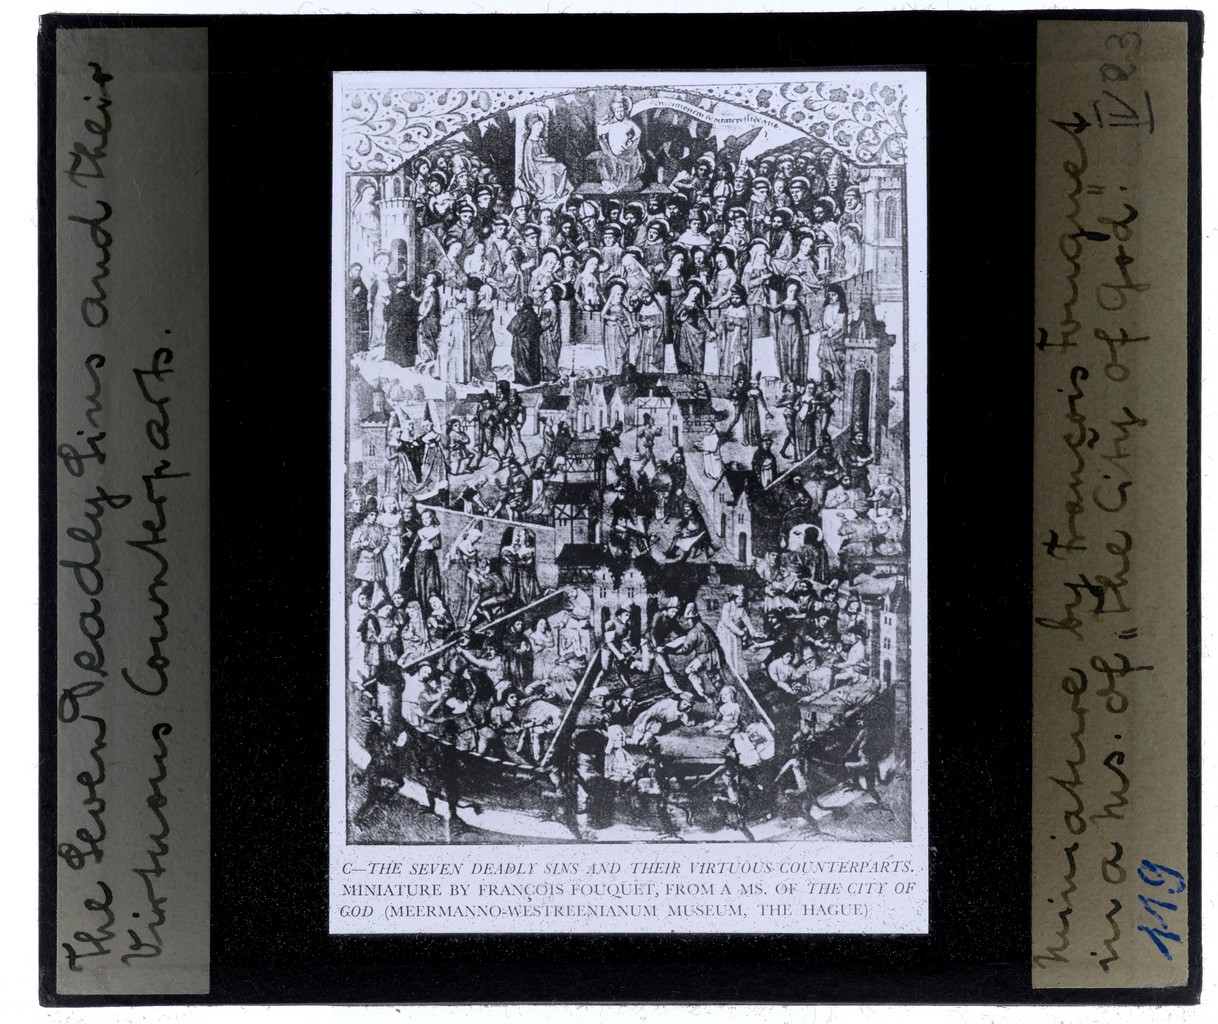 The Seven Deadly Sins and their
Virtuous Counterparts.
C—THE SEVEN DEADLY SINS AND THEIR VIRTUOUS COUNTERPARTS.
MINIATURE BY FRANÇOIS FOUQUET, FROM A MS. OF THE CITY OF
GOD (MEERMANNO-WESTREENIANUM MUSEUM, THE HAGUE)
Miniature by François Fouquet
in a ms. of „The City of God". IV 23
119